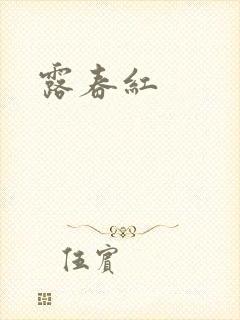 露春紅
伍賓